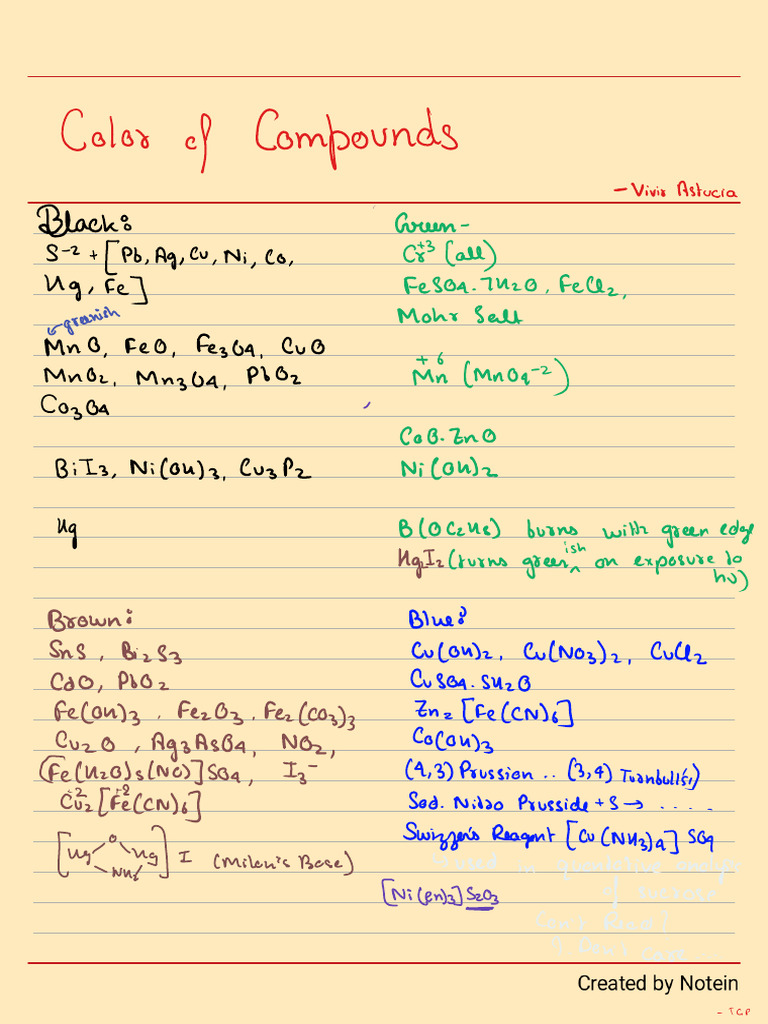 Color of Compounds
- Vivir Astucia
Black:
S⁻² + [Pb, Ag, Cu, Ni, Co,
Hg, Fe]
↳ greenish
MnO, FeO, Fe3O4, CuO
MnO2, Mn3O4, PbO2
Co3O4
BiI3, Ni(OH)3, Cu3P2
Hg
Green -
Cr⁺³ (all)
FeSO4.7H2O, FeCl2,
Mohr Salt
+6
Mn (MnO4⁻²)
CoO.ZnO
Ni(OH)2
B(OC2H5) burns with green edge
Hg2I2 (turns greenish on exposure to
hν)
Brown:
SnS, Bi2S3
CdO, PbO2
Fe(OH)3, Fe2O3, Fe2(CO3)3
Cu2O, Ag3AsO4, NO2,
[Fe(H2O)5(NO)]SO4, I3⁻
+2 +2
Cu2[Fe(CN)6]
[Hg O Hg NH2] I (Milon's Base)
Blue:
Cu(OH)2, Cu(NO3)2, CuCl2
CuSO4.5H2O
Zn2[Fe(CN)6]
Co(OH)3
(4,3) Prussion .. (3,4) Turnbull(s)
Sod. Nitro Prusside + S → .....
Swizzer's Reagent [Cu(NH3)4]SO4
[Ni(en)3]S2O3
Created by Notein
- TCP